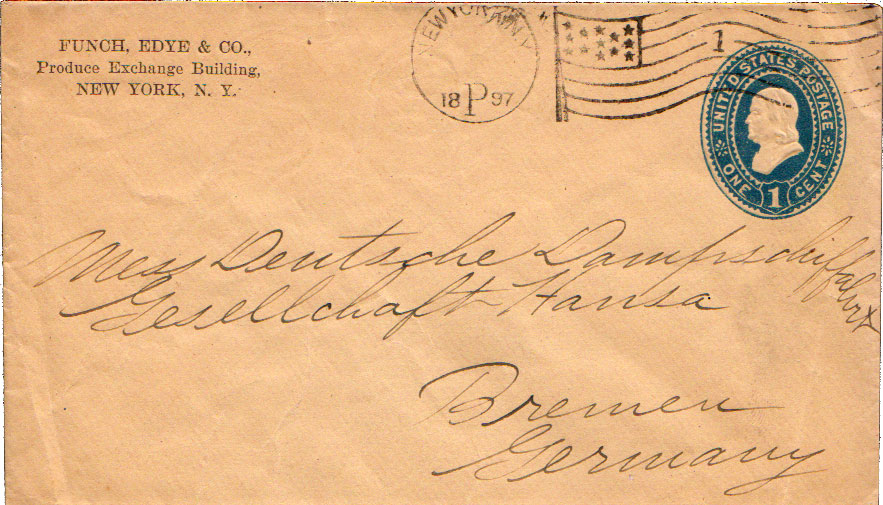 FUNCH, EDYE & CO.,
Produce Exchange Building,
NEW YORK, N. Y.
NEW YORK, N.Y.
18 P 97
1
UNITED STATES POSTAGE
ONE 1 CENT
Mess Deutsche Dampschiffahrt
Gesellchaft Hansa
Bremen
Germany